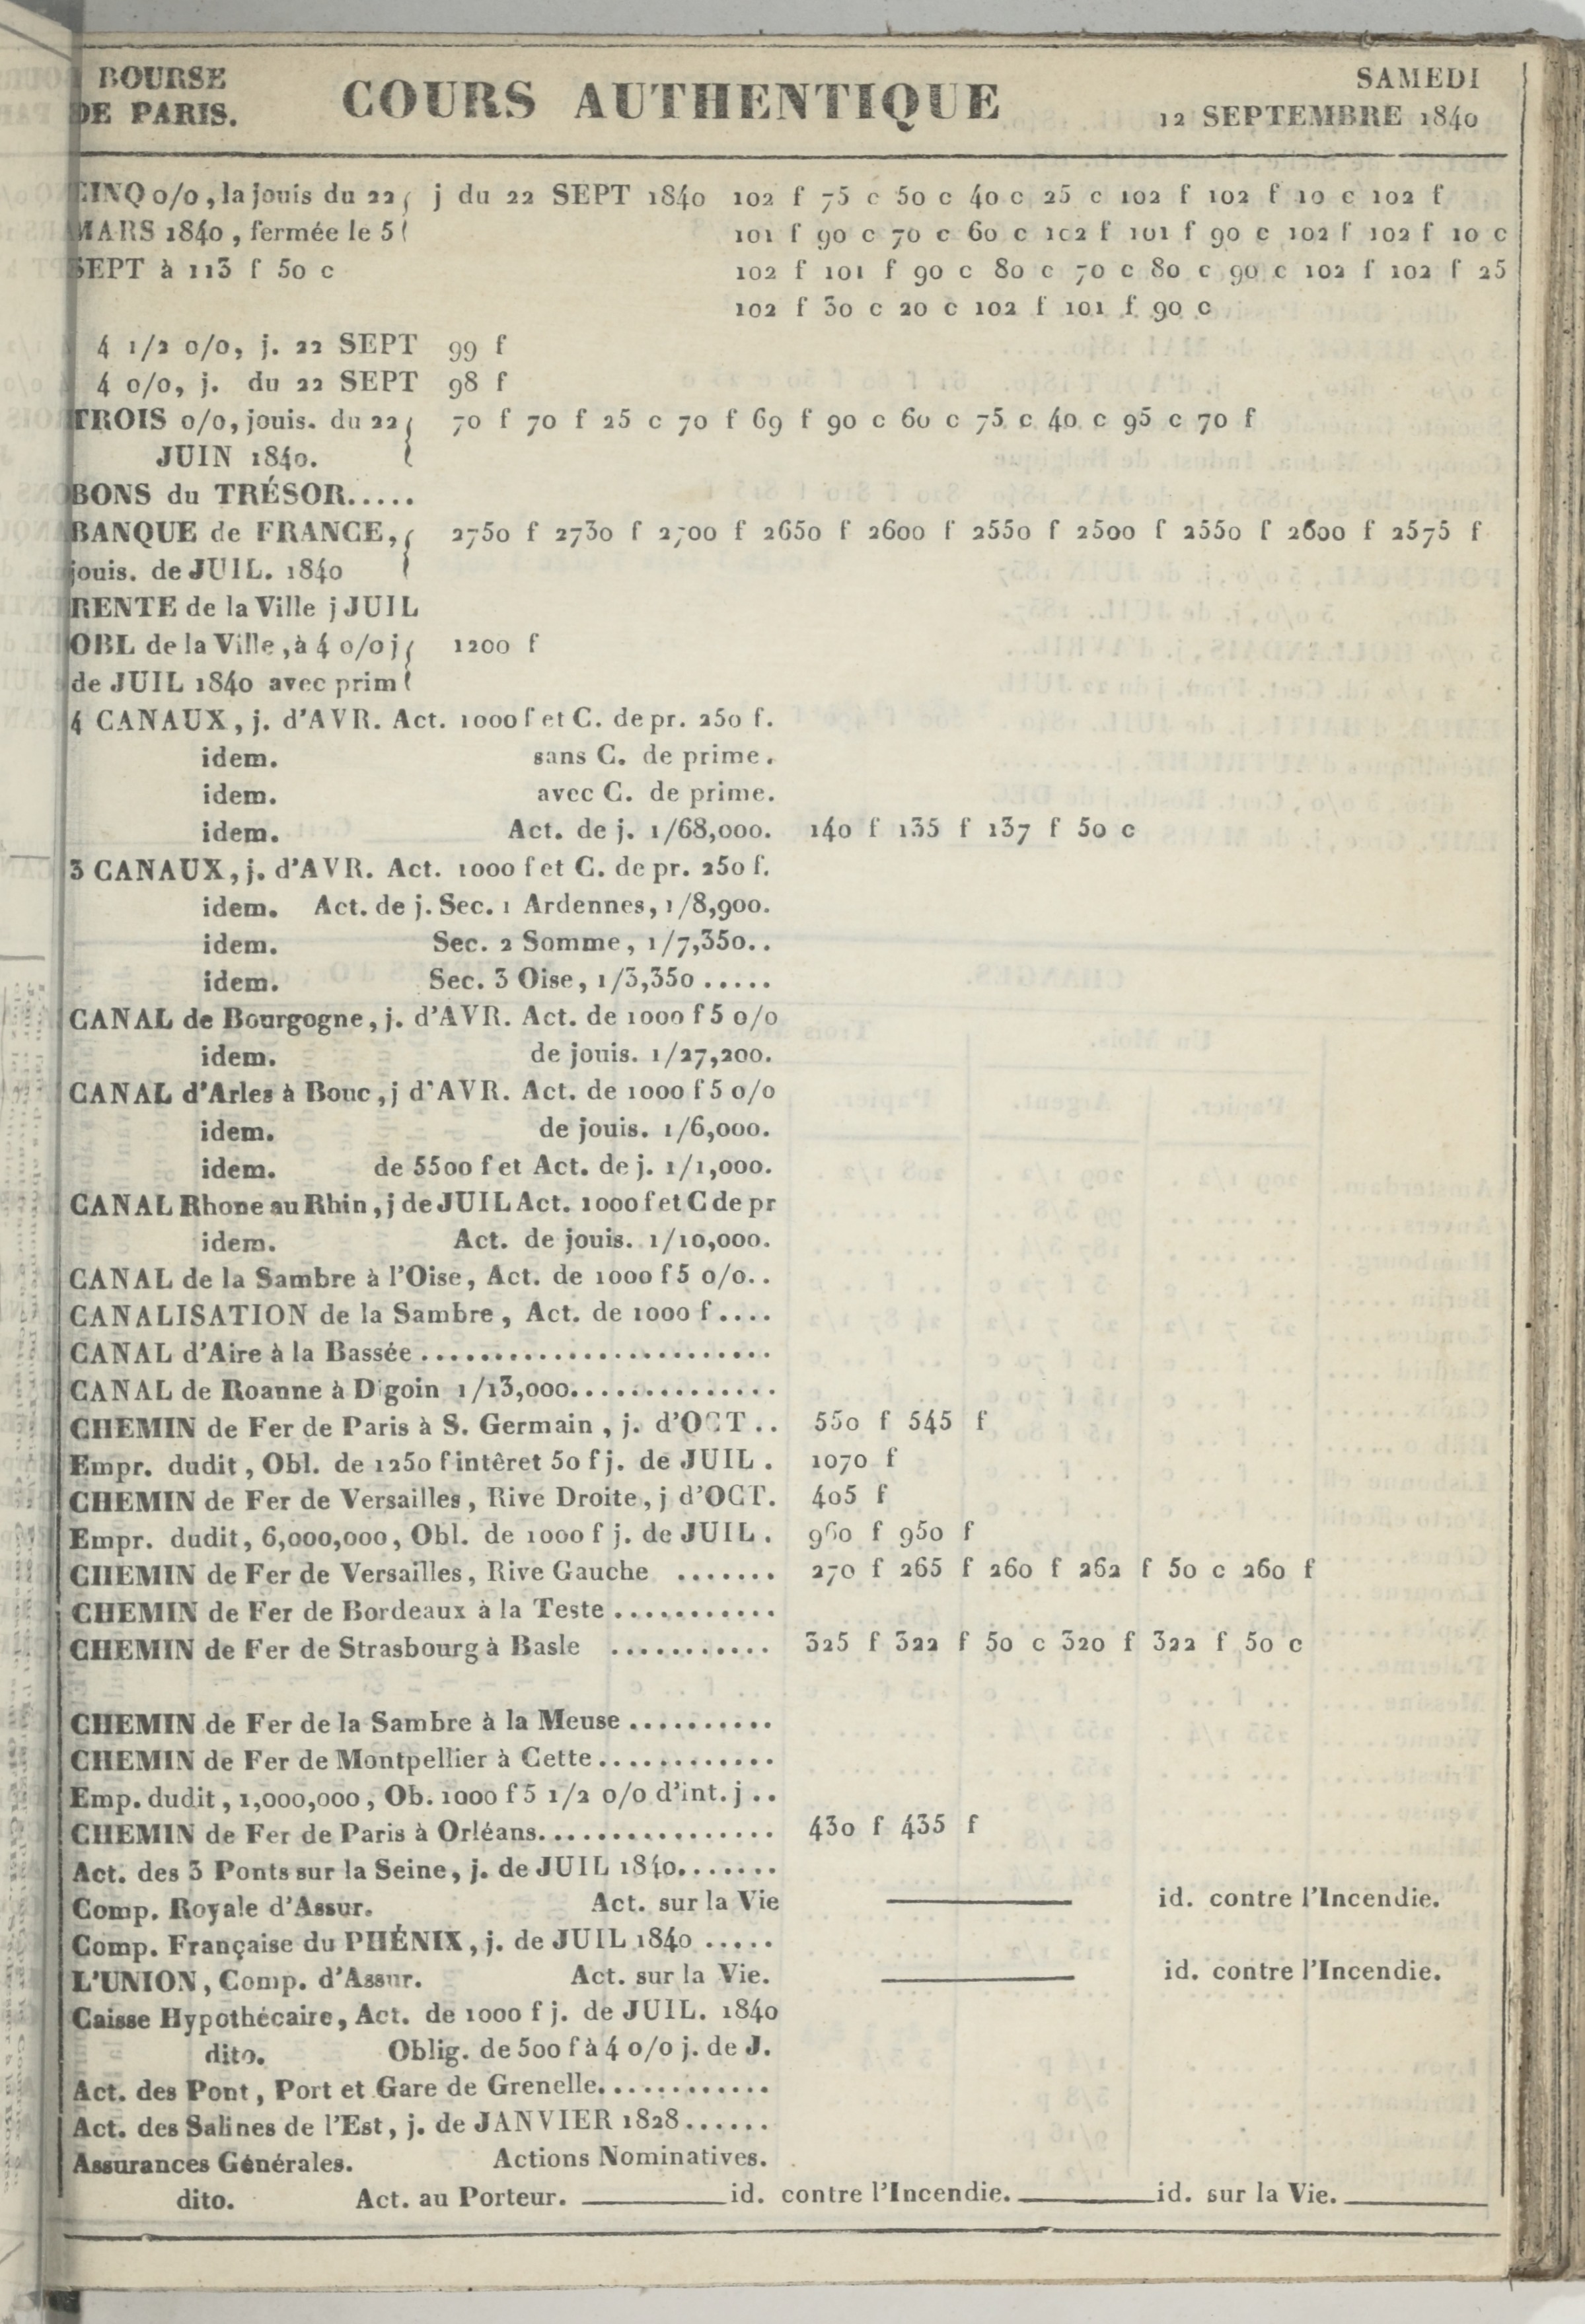 BOURSE
DE PARIS.
COURS AUTHENTIQUE
SAMEDI
12 SEPTEMBRE 1840
CINQ o/o, la jouis du 22 j du 22 SEPT 1840 102 f 75 c 50 c 40 c 25 c 102 f 102 f 10 c 102 f
MARS 1840, fermée le 5 101 f 90 c 70 c 60 c 102 f 101 f 90 c 102 f 102 f 10 c
SEPT à 113 f 50 c 102 f 101 f 90 c 80 c 70 c 80 c 90 c 102 f 102 f 25
102 f 30 c 20 c 102 f 101 f 90 c
4 1/2 o/o, j. 22 SEPT 99 f
4 o/o, j. du 22 SEPT 98 f
TROIS o/o, jouis. du 22 70 f 70 f 25 c 70 f 69 f 90 c 60 c 75 c 40 c 95 c 70 f
JUIN 1840.
BONS du TRÉSOR.....
BANQUE de FRANCE, 2750 f 2730 f 2700 f 2650 f 2600 f 2550 f 2500 f 2550 f 2600 f 2575 f
jouis. de JUIL. 1840
RENTE de la Ville j JUIL
OBL de la Ville, à 4 o/o j 1200 f
de JUIL 1840 avec prim
4 CANAUX, j. d'AVR. Act. 1000 f et C. de pr. 250 f.
idem. sans C. de prime.
idem. avec C. de prime.
idem. Act. de j. 1/68,000. 140 f 135 f 137 f 50 c
3 CANAUX, j. d'AVR. Act. 1000 f et C. de pr. 250 f.
idem. Act. de j. Sec. 1 Ardennes, 1/8,900.
idem. Sec. 2 Somme, 1/7,350..
idem. Sec. 3 Oise, 1/3,350.....
CANAL de Bourgogne, j. d'AVR. Act. de 1000 f 5 o/o
idem. de jouis. 1/27,200.
CANAL d'Arles à Bouc, j d'AVR. Act. de 1000 f 5 o/o
idem. de jouis. 1/6,000.
idem. de 5500 f et Act. de j. 1/1,000.
CANAL Rhone au Rhin, j de JUIL Act. 1000 f et C de pr
idem. Act. de jouis. 1/10,000.
CANAL de la Sambre à l'Oise, Act. de 1000 f 5 o/o..
CANALISATION de la Sambre, Act. de 1000 f....
CANAL d'Aire à la Bassée........................
CANAL de Roanne à Digoin 1/13,000..............
CHEMIN de Fer de Paris à S. Germain, j. d'OCT.. 550 f 545 f
Empr. dudit, Obl. de 1250 f intêret 50 f j. de JUIL. 1070 f
CHEMIN de Fer de Versailles, Rive Droite, j d'OCT. 405 f
Empr. dudit, 6,000,000, Obl. de 1000 f j. de JUIL. 960 f 950 f
CHEMIN de Fer de Versailles, Rive Gauche ....... 270 f 265 f 260 f 262 f 50 c 260 f
CHEMIN de Fer de Bordeaux à la Teste...........
CHEMIN de Fer de Strasbourg à Basle ........... 325 f 322 f 50 c 320 f 322 f 50 c
CHEMIN de Fer de la Sambre à la Meuse..........
CHEMIN de Fer de Montpellier à Cette............
Emp. dudit, 1,000,000, Ob. 1000 f 5 1/2 o/o d'int. j..
CHEMIN de Fer de Paris à Orléans................ 430 f 435 f
Act. des 3 Ponts sur la Seine, j. de JUIL 1840.......
Comp. Royale d'Assur. Act. sur la Vie id. contre l'Incendie.
Comp. Française du PHÉNIX, j. de JUIL 1840.....
L'UNION, Comp. d'Assur. Act. sur la Vie. id. contre l'Incendie.
Caisse Hypothécaire, Act. de 1000 f j. de JUIL. 1840
dito. Oblig. de 500 f à 4 o/o j. de J.
Act. des Pont, Port et Gare de Grenelle............
Act. des Salines de l'Est, j. de JANVIER 1828......
Assurances Générales. Actions Nominatives.
dito. Act. au Porteur. id. contre l'Incendie. id. sur la Vie.